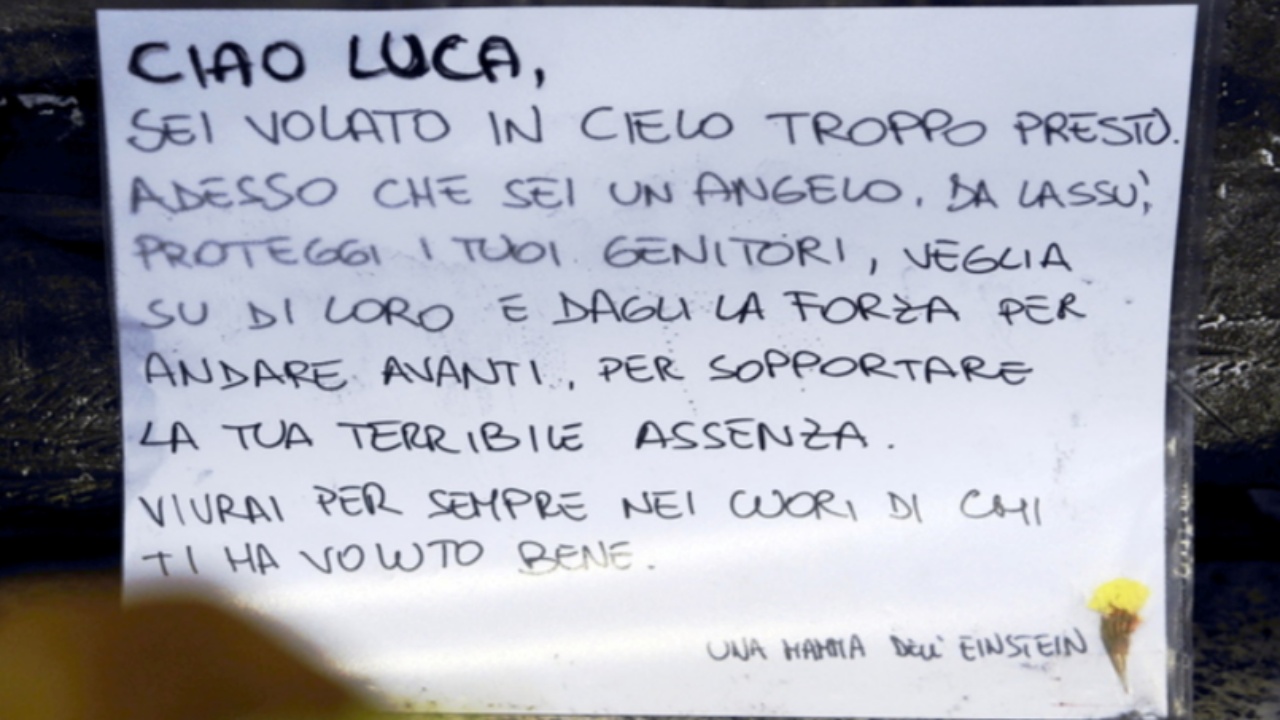 CIAO LUCA,
SEI VOLATO IN CIELO TROPPO PRESTO.
ADESSO CHE SEI UN ANGELO, DA LASSU',
PROTEGGI I TUOI GENITORI, VEGLIA
SU DI LORO E DAGLI LA FORZA PER
ANDARE AVANTI, PER SOPPORTARE
LA TUA TERRIBILE ASSENZA.
VIVRAI PER SEMPRE NEI CUORI DI CHI
TI HA VOLUTO BENE.
UNA MAMMA DELL' EINSTEIN